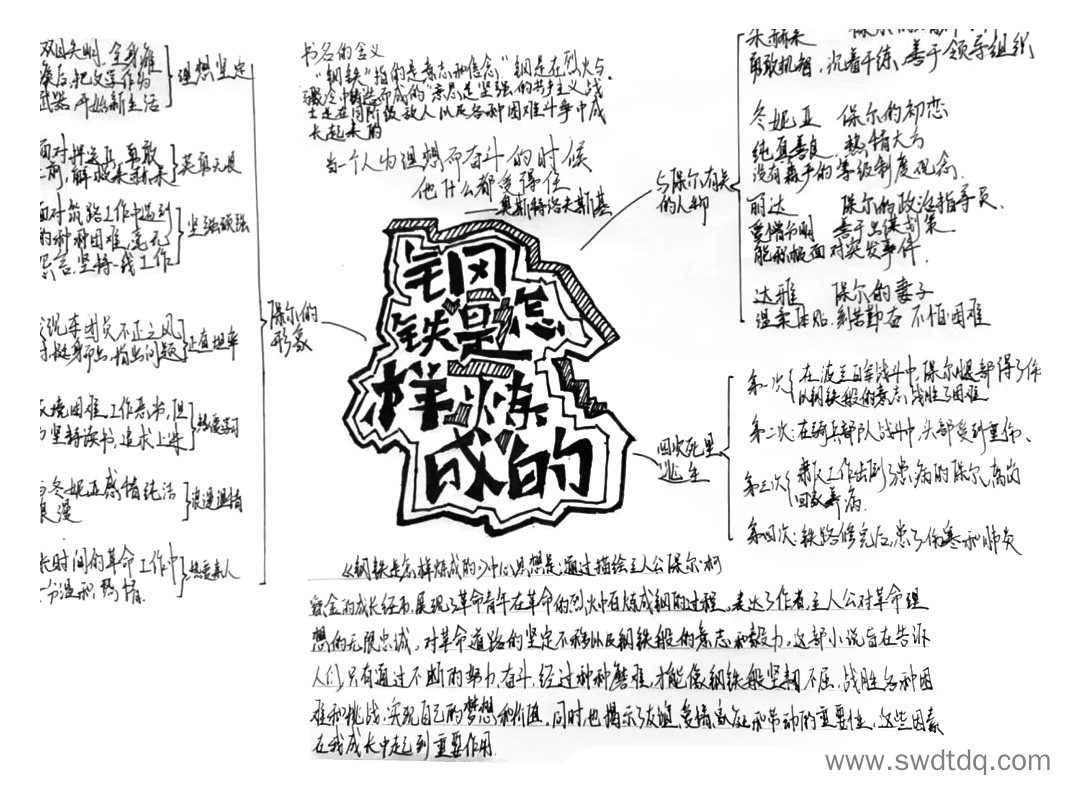 双目失明,全身瘫
痪后,把文学作为
武器,开始新生活
理想坚定
面对押送兵,勇敢
上前,解救朱赫来
英勇无畏
面对筑路工作中遇到
的种种困难,毫无
怨言,坚持一线工作
坚强顽强
团员不正之风
挺身而出,指出问题
正直坦率
环境困难,工作忙,但
坚持读书,追求上进
热爱学习
与冬妮亚感情纯洁
浪漫
浪漫温情
长时间的革命工作中
温和,热情.
热爱亲人
保尔的
形象
书名的含义
"钢铁"指的是意志和信念"钢是在烈火与
骤冷中铸造而成的"意思是坚强的共产主义战
士是在同阶级敌人以及各种困难斗争中成
长起来的
当一个人为理想而奋斗的时候
他什么都受得住
——奥斯特洛夫斯基
钢
铁是怎
样炼
成的
与保尔有关
的人物
朱赫来 保尔的
勇敢机智,沉着干练,善于领导组织
冬妮亚 保尔的初恋
纯真善良,热情大方
没有森严的等级制度观念.
丽达 保尔的政治指导员.
爱憎分明 善于出谋划策
能积极面对突发事件.
达雅 保尔的妻子
温柔体贴 刻苦勤奋 不怕困难
四次死里
逃生
第一次 在波兰白军战斗中,保尔腿部得了伤
以钢铁般的意志,战胜了困难
第二次:在骑兵部队战斗中,头部受到重伤.
第三次 肃反工作出到了患病的保尔,离岗
回家养病.
第四次:铁路修完后,患了伤寒和肺炎
《钢铁是怎样炼成的》中心思想是:通过描绘主人公保尔·柯
察金的成长经历,展现了革命青年在革命的烈火中百炼成钢的过程,表达了作者,主人公对革命理
想的无限忠诚,对革命道路的坚定不移以及钢铁般的意志和毅力,这部小说旨在告诉
人们,只有通过不断的努力,奋斗,经过种种磨难,才能像钢铁般坚韧不屈,战胜各种困
难和挑战,实现自己的梦想和价值,同时,也揭示了友谊,爱情,家庭和劳动的重要性,这些因素
在我成长中起到重要作用.
www.swdtdq.com